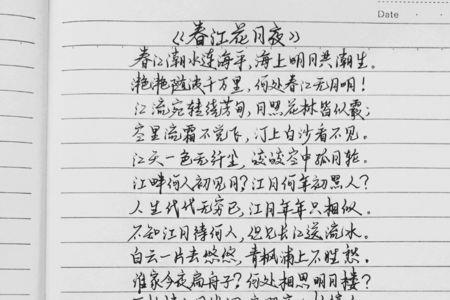 Date
《春江花月夜》
春江潮水连海平，海上明月共潮生。
滟滟随波千万里，何处春江无月明！
江流宛转绕芳甸，月照花林皆似霰；
空里流霜不觉飞，汀上白沙看不见。
江天一色无纤尘，皎皎空中孤月轮。
江畔何人初见月？江月何年初照人？
人生代代无穷已，江月年年只相似。
不知江月待何人，但见长江送流水。
白云一片去悠悠，青枫浦上不胜愁。
谁家今夜扁舟子？何处相思明月楼？